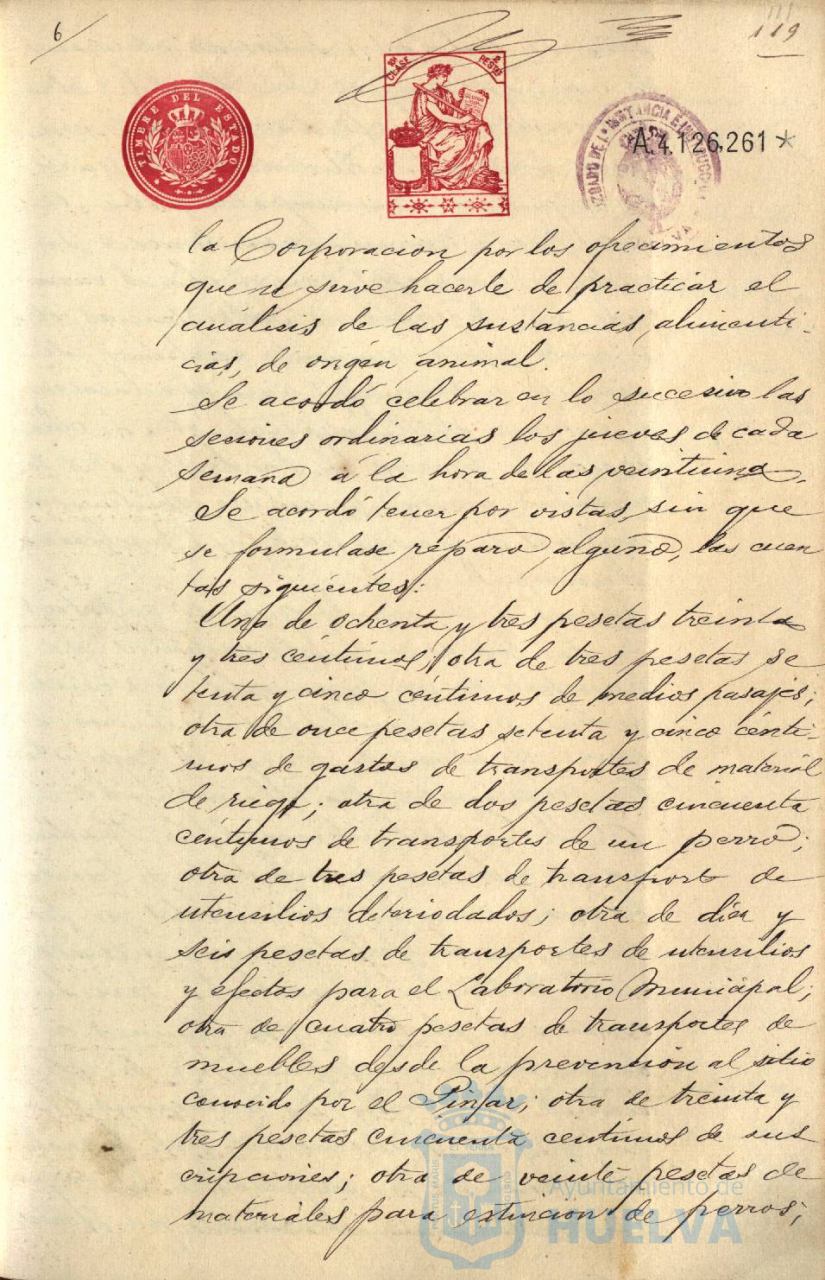 6
119
TIMBRE DEL ESTADO
CLASE
PESETAS
A.4.126,261*
la Corporacion por los ofrecimientos
que se sirve hacerle de practicar el
análisis de las sustancias, alimenti-
cias, de origen animal.
Se acordó celebrar en lo sucesivo las
sesiones ordinarias los jueves de cada
semana á la hora de las veintiuna.
Se acordó tener por vistas, sin que
se formulase reparo alguno, las cuen
tas siguientes:
Una de ochenta y tres pesetas treinta
y tres céntimos; otra de tres pesetas se
tenta y cinco céntimos de medios pasajes;
otra de once pesetas setenta y cinco cénti-
mos de gastos de transportes de material
de riego; otra de dos pesetas cincuenta
céntimos de transportes de un perro;
otra de tres pesetas de transporte de
utensilios deteriodados; otra de diez y
seis pesetas de transportes de utensilios
y efectos para el Laboratorio Municipal;
otra de cuatro pesetas de transportes de
muebles desde la prevención al sitio
conocido por el Pinar; otra de treinta y
tres pesetas cincuenta centimos de sus
cripciones; otra de veinte pesetas de
materiales para extincion de perros;
Ayuntamiento de
HUELVA